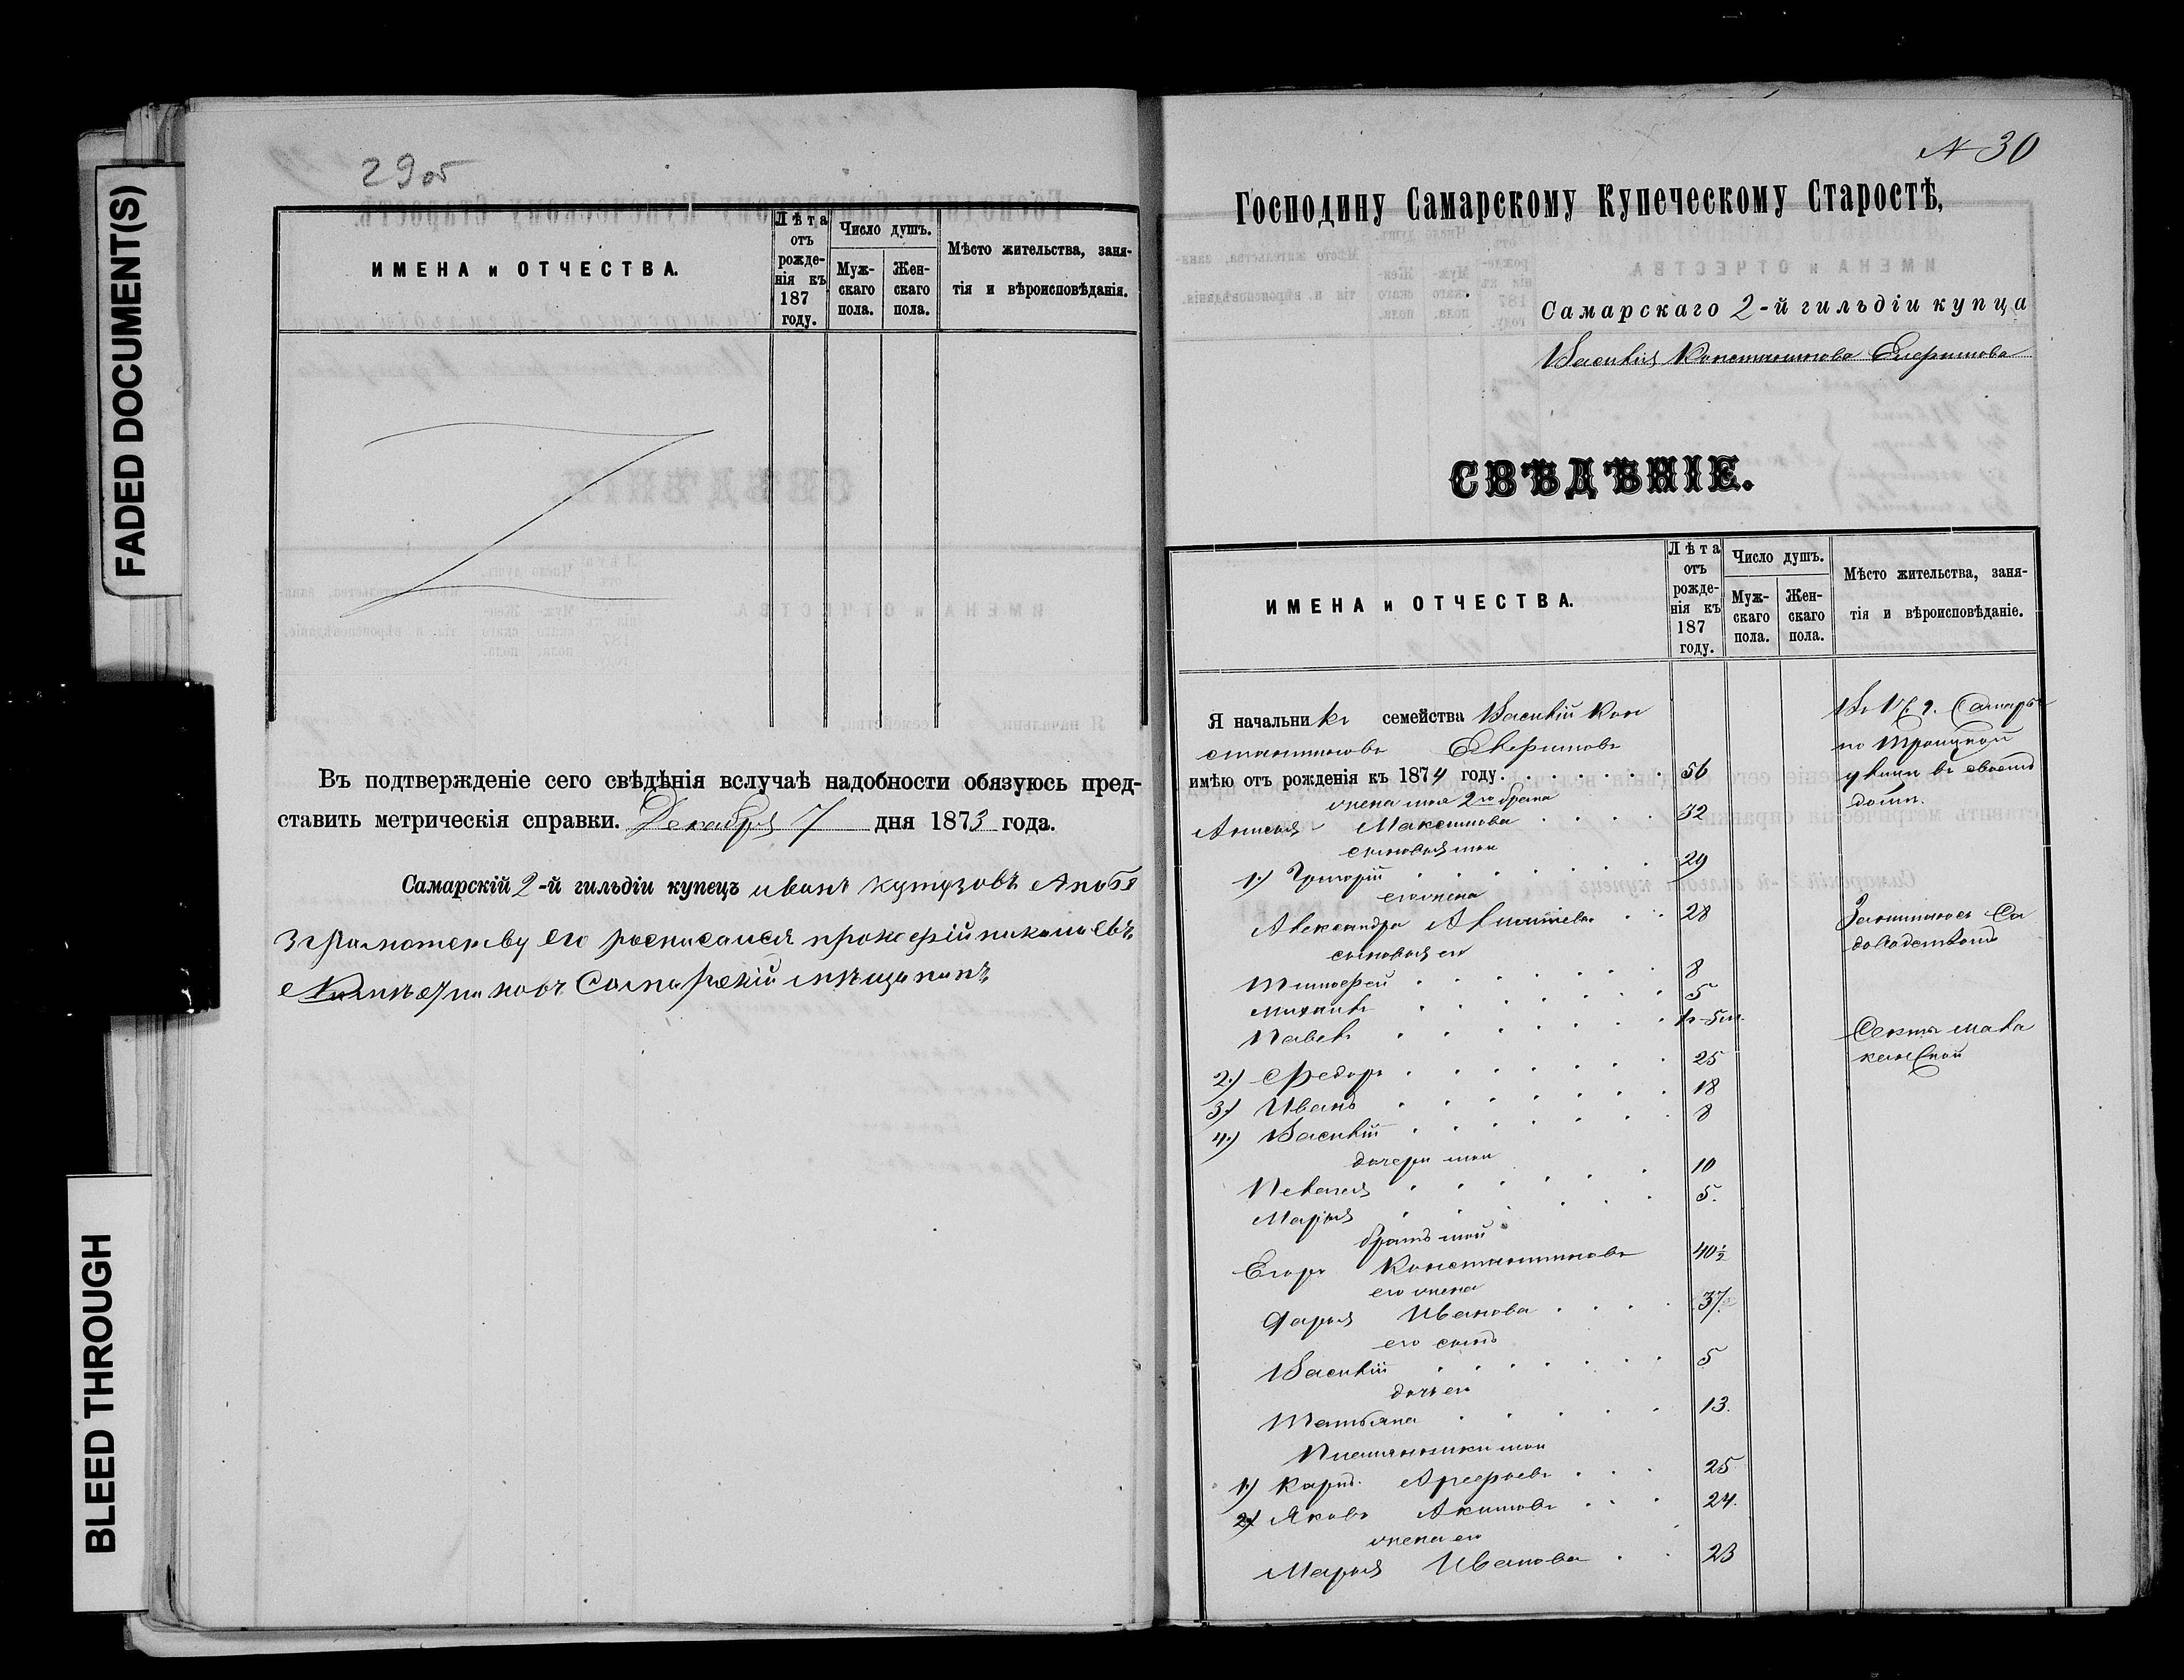 FADED DOCUMENT(S)
BLEED THROUGH
29 об
ИМЕНА и ОТЧЕСТВА.
Лѣта отъ рожденія къ 187 году.
Число душъ.
Мужскаго пола.
Женскаго пола.
Мѣсто жительства, занятія и вѣроисповѣданія.
Въ подтвержденіе сего свѣдѣнія вслучаѣ надобности обязуюсь пред-
ставить метрическія справки. Декабря 7 дня 1873 года.
Самарскій 2-й гильдіи купецъ иванъ кутузовъ
его росписался николаевъ
Самарскій мѣщанинъ
№ 30
Господину Самарскому Купеческому Старостѣ,
Самарскаго 2-й гильдіи купца
Василія Константинова
СВѢДѢНІЕ.
ИМЕНА и ОТЧЕСТВА.
Лѣта отъ рожденія къ 187 году.
Число душъ.
Мужскаго пола.
Женскаго пола.
Мѣсто жительства, занятія и вѣроисповѣданіе.
Я начальникъ семейства Василій Кон
стантиновъ
имѣю отъ рожденія къ 1874 году. 56
жена моя 2го брака
Максимова 32
сыновья мои
1.) Григорій 29
его жена
Александра 28
сыновья его
Тимофей 8
Михаилъ 5
Павелъ
2.) Федоръ 25
3.) Иванъ 18
4.) Василій 8
дочери мои
Пелагея 10
Марья 5.
братъ мой
Егоръ Константиновъ 40½
его жена
Дарья Иванова 37.
его сынъ
Василій 5
дочь его
Татьяна 13.
Племянники мои
1.) Карпъ Арефьевъ 25
2.) Яковъ Акимовъ 24.
жена его
Марья Иванова 23
Самарѣ
по Троицкой
улицѣ въ своемъ
домѣ.
Занимаюсь Са
доводствомъ
Секты мала
канской